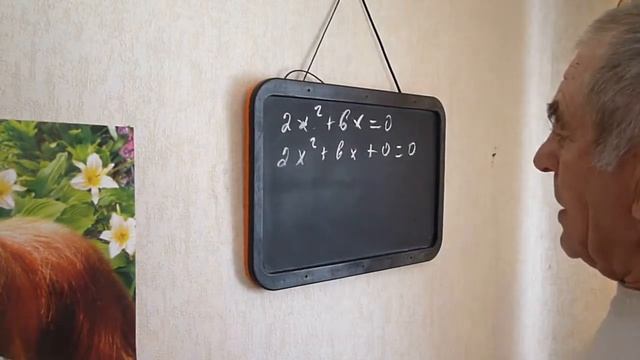 2x² + 6x = 0
2x² + 6x + 0 = 0